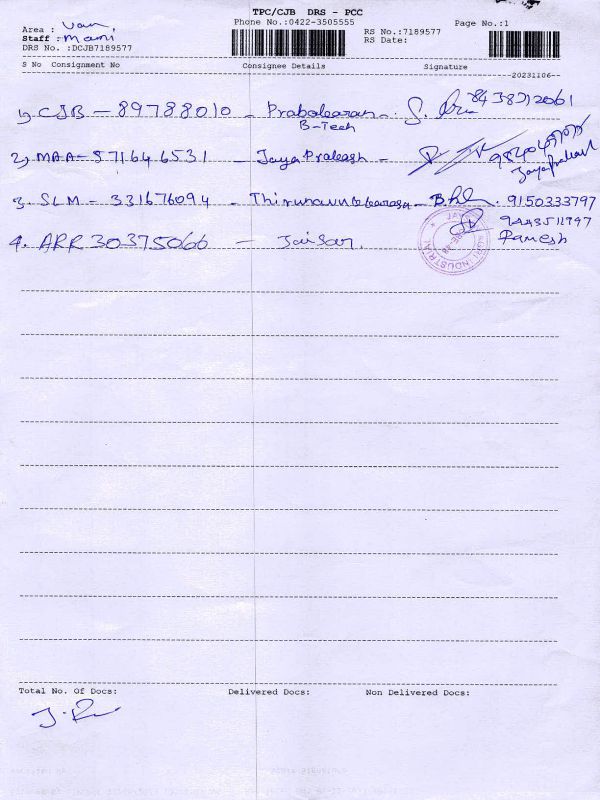 TPC/CJB DRS - PCC
Area : Van,
Phone No.:0422-3505555
Page No.:1
Staff : Mani
RS No.:7189577
DRS No. :DCJB7189577
RS Date:
S No Consignment No Consignee Details Signature
20231106
1) CJB - 89788010 - Prabakaran -
B-Tech
2) MAA - 571646531 - Jaya Prakash -
Jayaprakash
3. SLM - 331676094 - 9150333797
4. ARR 30375066 - Jaisar.
Ramesh
INDUSTRIAL
Total No. Of Docs: Delivered Docs: Non Delivered Docs: